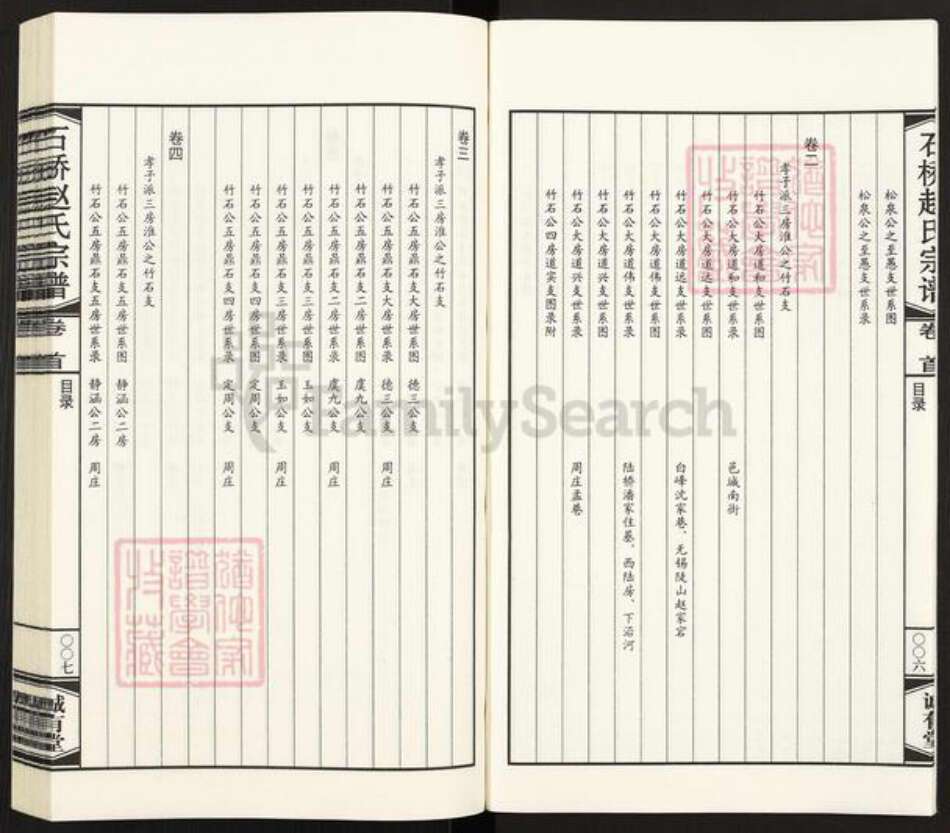 石桥赵氏宗谱
卷首
目录
〇〇六
诚有堂
松泉公之至愚支世系图
松泉公之至愚支世系录
卷二
孝子派三房淮公之竹石支
竹石公大房道和支世系图
竹石公大房道和支世系录 邑城南街
竹石公大房道达支世系图
竹石公大房道达支世系录 白峰沈家巷、无锡陡山赵家宕
竹石公大房道伟支世系图
竹石公大房道伟支世系录 陆桥潘家住基、西陆房、下沿河
竹石公大房道兴支世系图
竹石公大房道兴支世系录 周庄孟巷
竹石公四房道实支图录附
卷三
孝子派三房淮公之竹石支
竹石公五房鼎石支大房世系图 德三公支
竹石公五房鼎石支大房世系录 德三公支 周庄
竹石公五房鼎石支二房世系图 虞九公支
竹石公五房鼎石支二房世系录 虞九公支 周庄
竹石公五房鼎石支三房世系图 玉如公支
竹石公五房鼎石支三房世系录 玉如公支 周庄
竹石公五房鼎石支四房世系图 定周公支
竹石公五房鼎石支四房世系录 定周公支 周庄
卷四
孝子派三房淮公之竹石支
竹石公五房鼎石支五房世系图 静涵公二房
竹石公五房鼎石支五房世系录 静涵公二房 周庄
石桥赵氏宗谱
卷首
目录
〇〇七
诚有堂
FamilySearch
谱学会
收藏